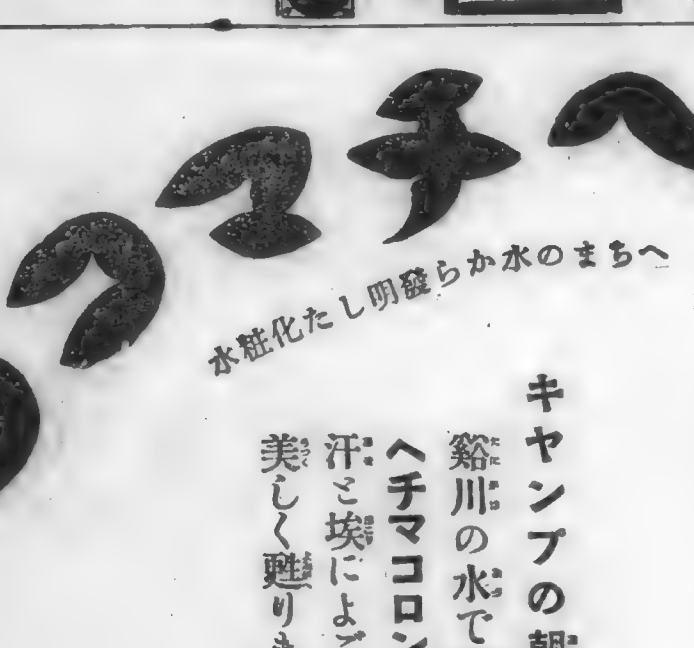 ヘチマコ
へちまの水から發明した化粧水
キヤンプの朝
谿川の水で
ヘチマコロン
汗と埃によご
美しく甦りま